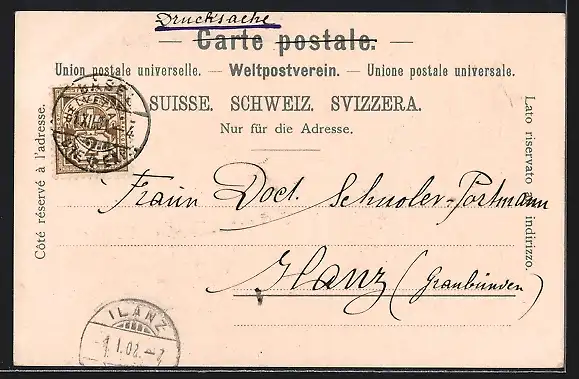 Drucksache
— Carte postale. —
Union postale universelle. — Weltpostverein. — Unione postale universale.
SUISSE. SCHWEIZ. SVIZZERA.
Nur für die Adresse.
Côté réservé à l'adresse.
Lato riservato all' indirizzo.
BASEL
HELVETIA
31.XII.
Fraun Doct. Schuoler-Portmann
Ilanz (Graubünden)
ILANZ
1.I.02.-7